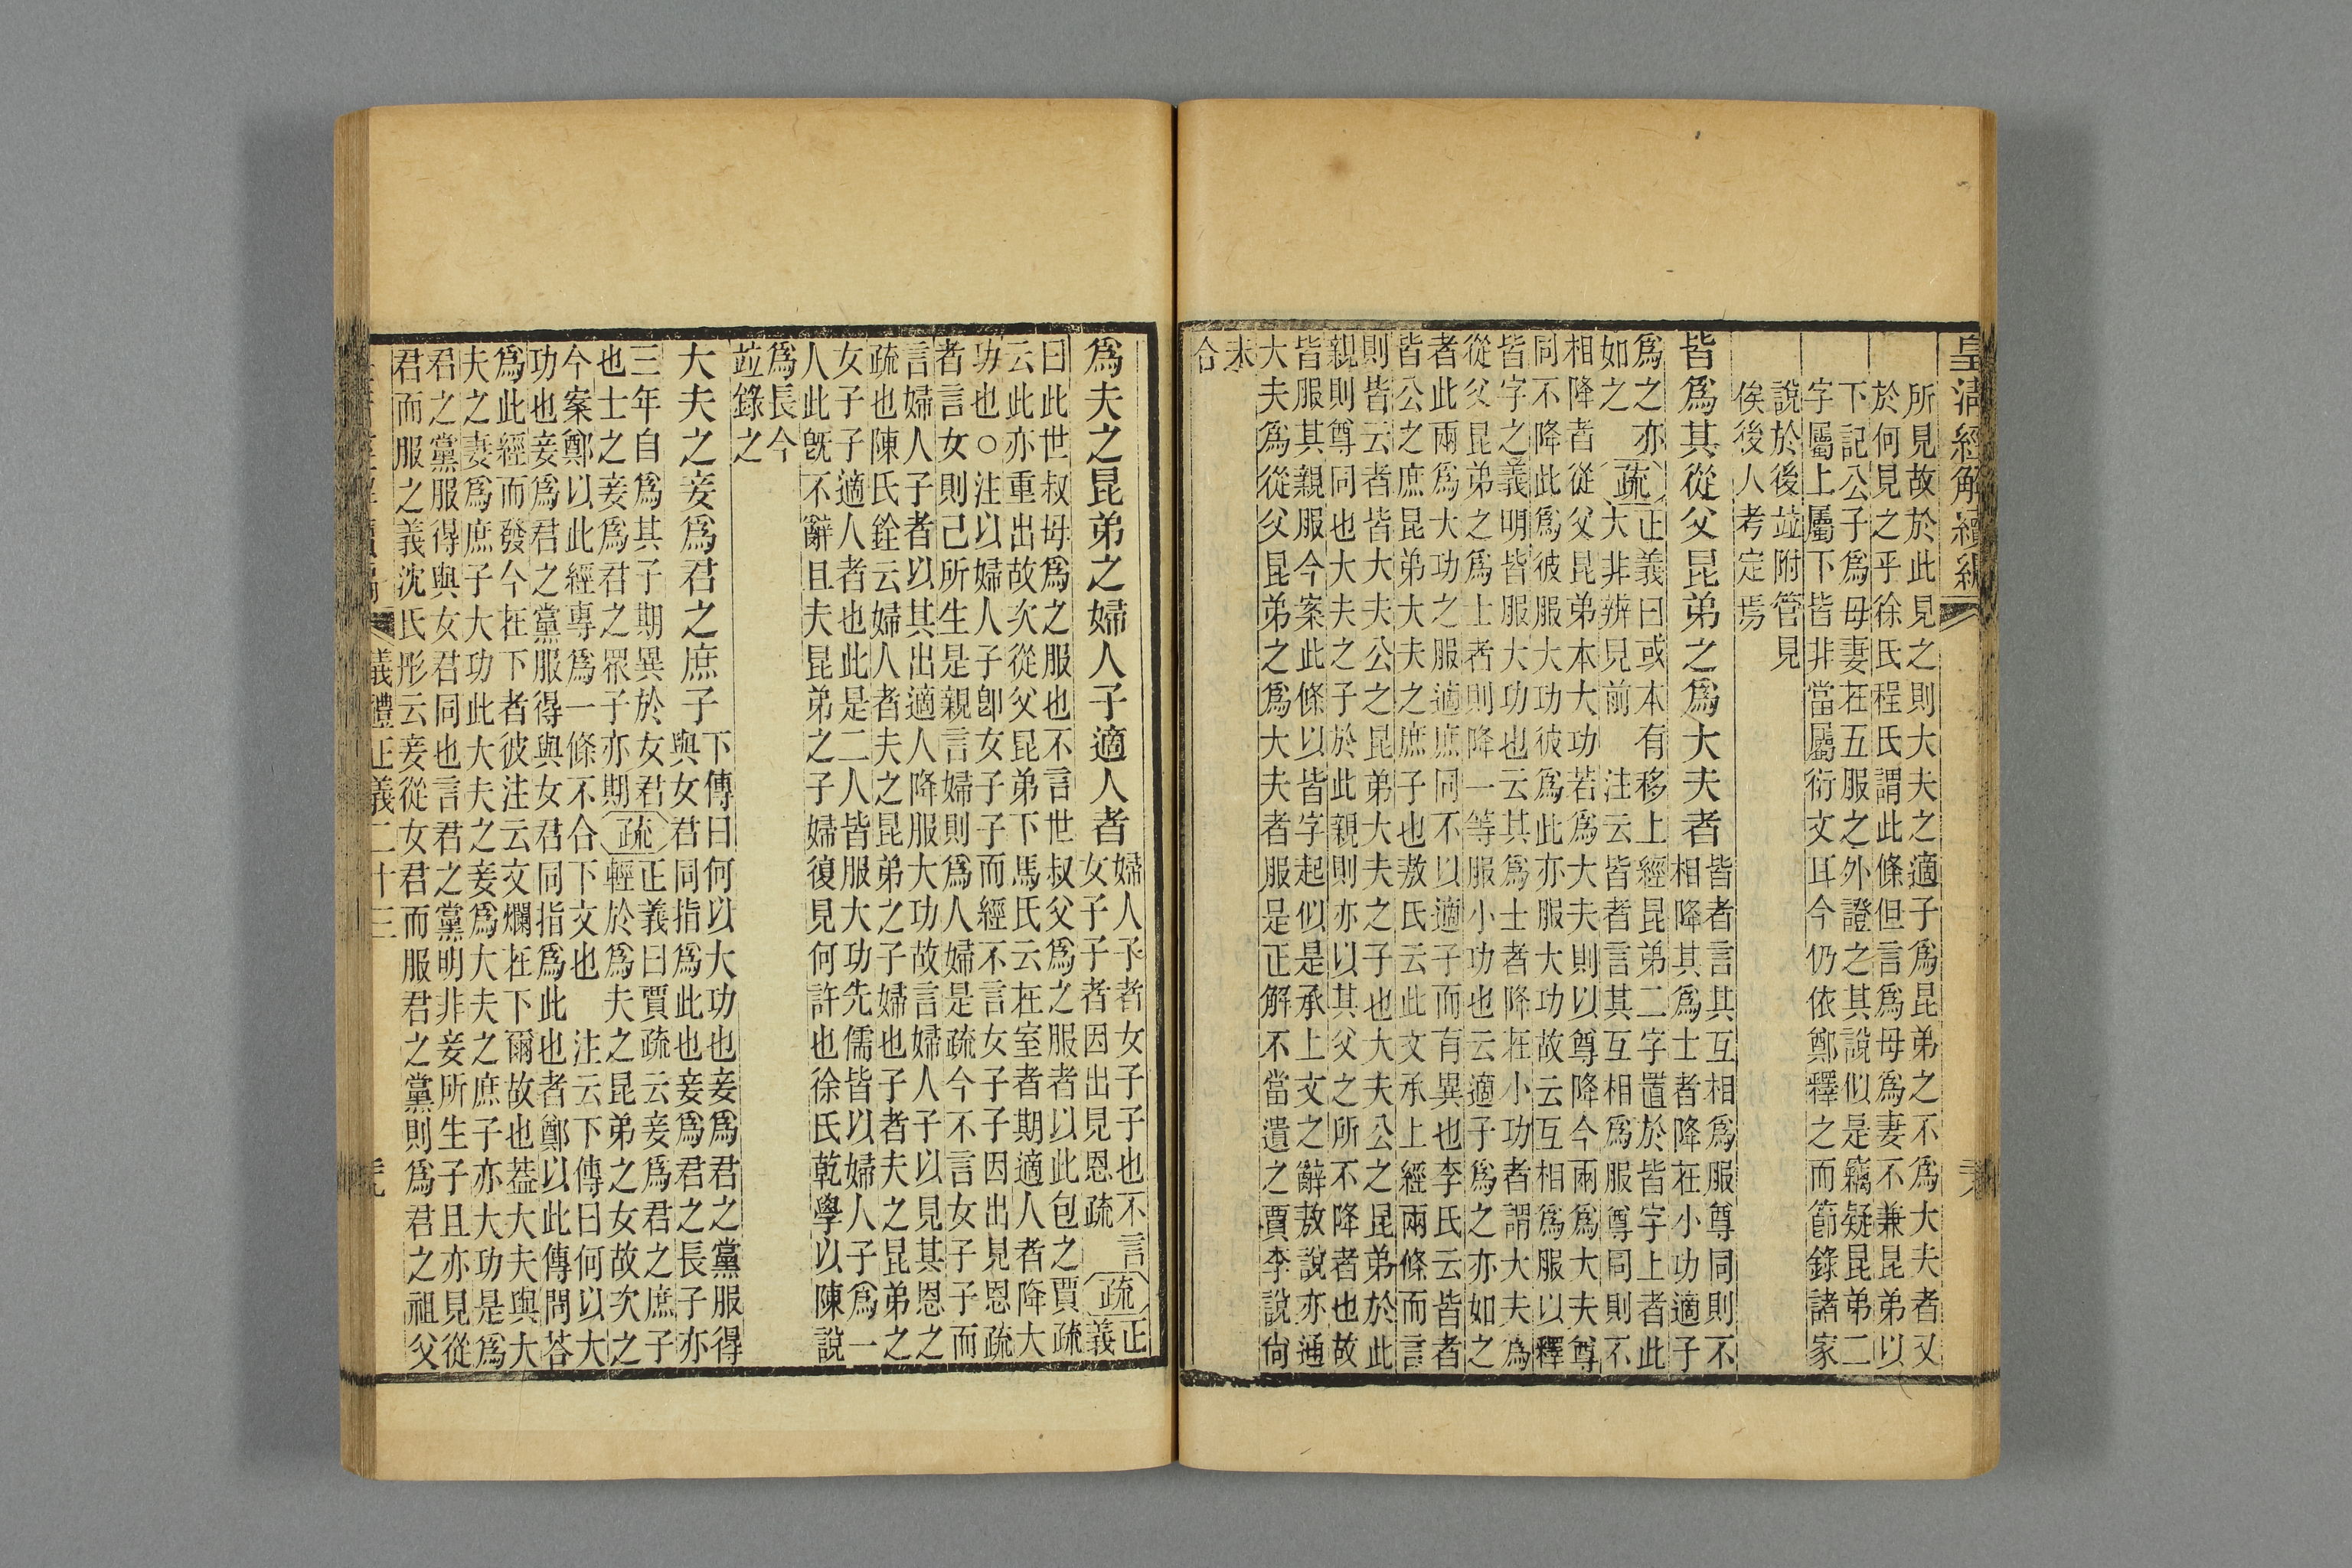 皇清經解續編
所見故於此見之則大夫之適子爲昆弟之不爲大夫者又
於何見之乎徐氏程氏謂此條但言爲母爲妻不兼昆弟以
下記公子爲母妻在五服之外證之其說似是竊疑昆弟二
字屬上屬下皆非當屬衍文耳今仍依鄭釋之而節錄諸家
說於後竝附管見
俟後人考定焉
皆爲其從父昆弟之爲大夫者 皆者言其互相爲服尊同則不
相降其爲士者降在小功適子
爲之亦 疏 正義曰或本有移上經昆弟二字置於皆字上者此
如之 大非辨見前 注云皆者言其互相爲服尊同則不
相降者從父昆弟本大功若爲大夫則以尊降今兩爲大夫尊
同不降此爲彼服大功彼爲此亦服大功故云互相爲服以釋
皆字之義明皆服大功也云其爲士者降在小功者謂大夫爲
從父昆弟之爲士者則降一等服小功也云適子爲之亦如之
者此兩爲大功之服適庶同不以適子而有異也李氏云皆者
皆公之庶昆弟大夫之庶子也敖氏云此文承上經兩條而言
則皆云者皆大夫公之昆弟大夫之子也大夫公之昆弟於此
親則尊同也大夫之子於此親則亦以其父之所不降者也故
皆服其親服今案此條以皆字起似是承上文之辭敖說亦通
大夫爲從父昆弟之爲大夫者服是正解不當遺之賈李說尚
未
合
爲夫之昆弟之婦人子適人者 婦人子者女子子也不言
女子子者因出見恩疏 疏 正
義
曰此世叔母爲之服也不言世叔父爲之服者以此包之賈疏
云此亦重出故次從父昆弟下馬氏云在室者期適人者降大
功也○注以婦人子卽女子子而經不言女子子因出見恩疏
者言女則己所生是親言婦則爲人婦是疏今不言女子子而
言婦人子者以其出適人降服大功故言婦人子以見其恩之
疏也陳氏銓云婦人者夫之昆弟之子婦也子者夫之昆弟之
女子子適人者也此是二人皆服大功先儒皆以婦人子爲一
人此旣不辭且夫昆弟之子婦復見何許也徐氏乾學以陳說
爲長今
竝錄之
大夫之妾爲君之庶子 下傳曰何以大功也妾爲君之黨服得
與女君同指爲此也妾爲君之長子亦
三年自爲其子期異於女君 疏 正義曰賈疏云妾爲君之庶子
也士之妾爲君之眾子亦期 輕於爲夫之昆弟之女故次之
今案鄭以此經專爲一條不合下文也 注云下傳曰何以大
功也妾爲君之黨服得與女君同指爲此也者鄭以此傳問荅
爲此經而發今在下者彼注云文爛在下爾故也葢大夫與大
夫之妻爲庶子大功此大夫之妾爲大夫之庶子亦大功是爲
君之黨服得與女君同也言君之黨明非妾所生子且亦見從
君而服之義沈氏彤云妾從女君而服君之黨則爲君之祖父
儀禮正義二十三